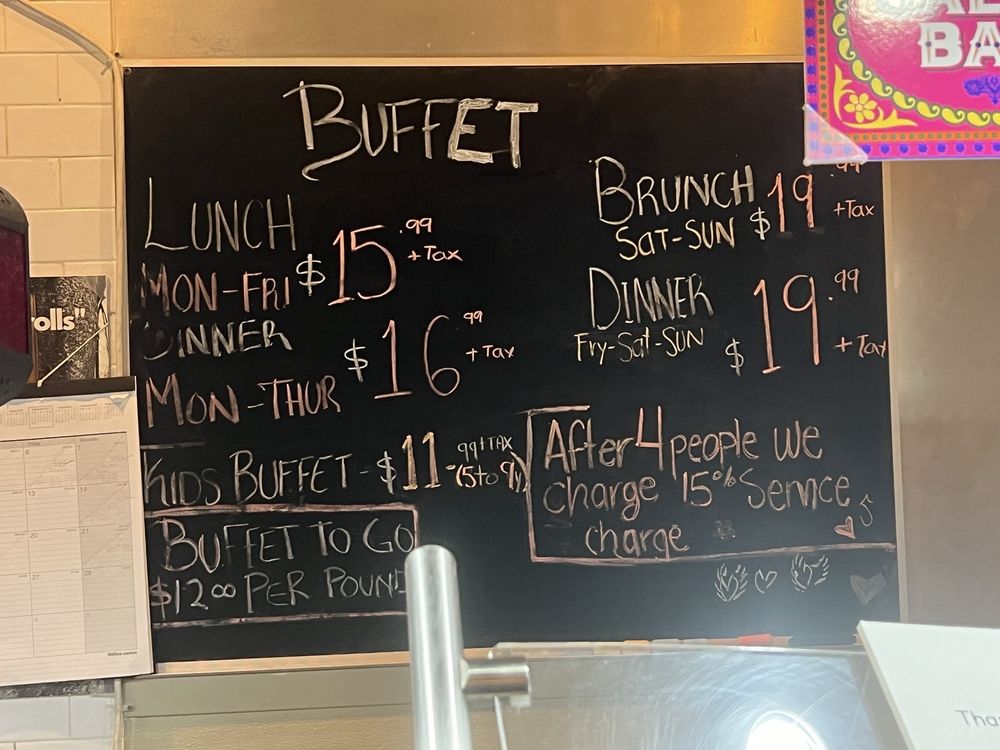 BUFFET
LUNCH
MON-FRI $15.99 + Tax
DINNER
MON-THUR $16 99 + Tax
KIDS BUFFET - $11 99+TAX (5 to 9y)
BUFFET TO GO
$12.00 PER POUND
BRUNCH
SAT-SUN $19.99 +Tax
DINNER
Fry-Sat-SUN $19.99 + Tax
After 4 people we
charge 15% Service
charge
BA
olls"
Office DEPOT
Tha